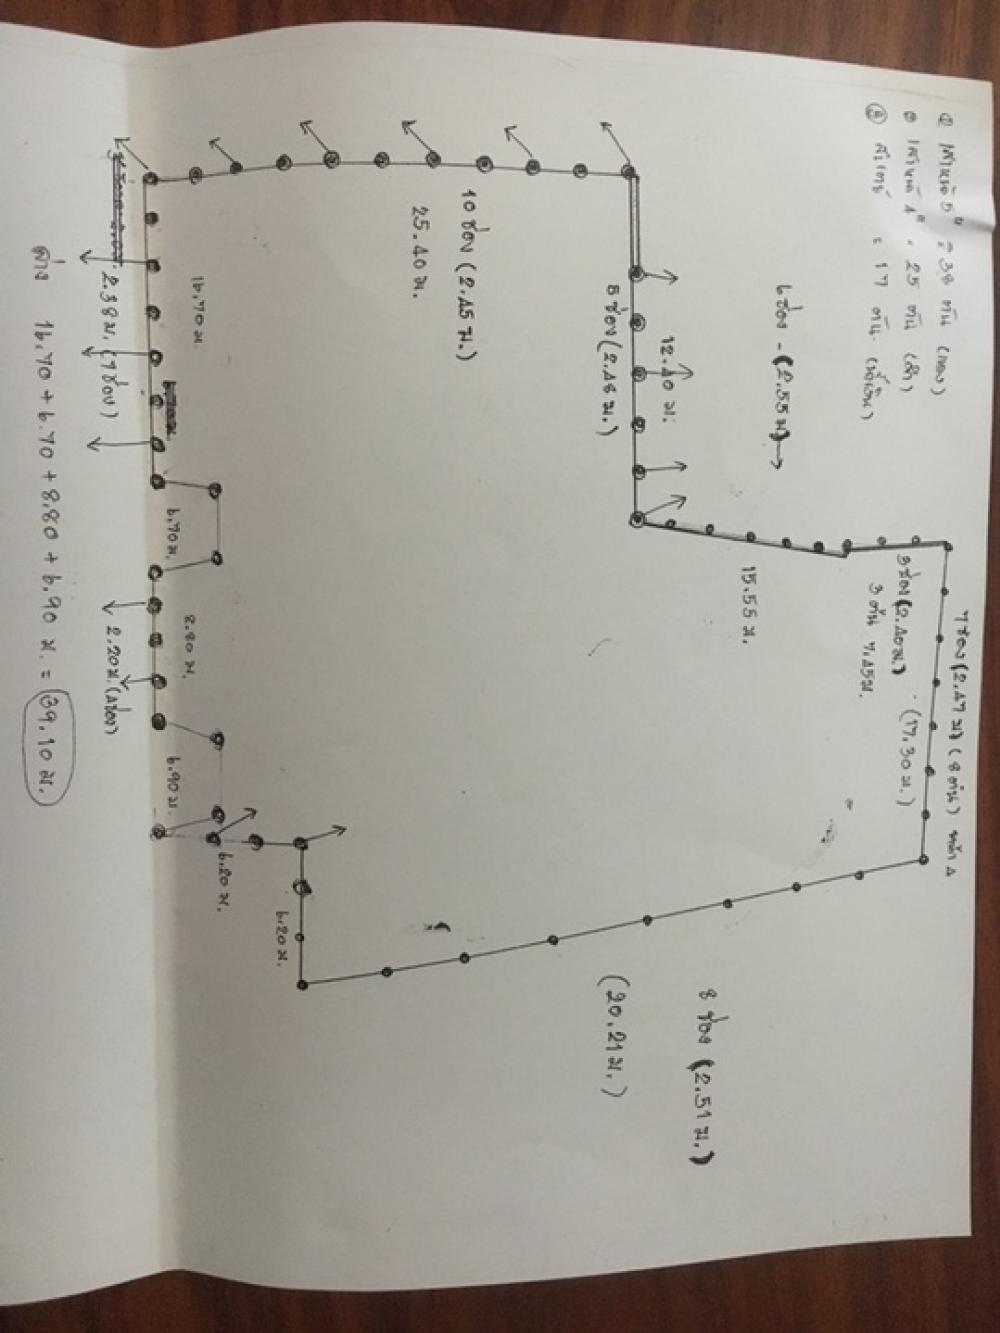 ① เสาหน้า 5" = 38 ต้น (แดง)
② เสาหน้า 4" = 25 ต้น (ดำ)
③ สเตย์ = 17 ต้น (น้ำเงิน)
7 ช่อง (2.47 ม) (8 ต้น) หน้า 4
(17.30 ม.)
3 ช่อง (2.40 ม.)
3 ต้น 7.45 ม.
6 ช่อง - (2.55 ม) →
15.55 ม.
12.40 ม.
5 ช่อง (2.46 ม.)
10 ช่อง (2.45 ม.)
25.40 ม.
8 ช่อง (2.51 ม.)
(20.21 ม.)
16.70 ม.
6.70 ม.
8.80 ม.
6.90 ม.
6.20 ม.
6.20 ม.
2.38 ม. (7 ช่อง)
2.20 ม. (4 ช่อง)
ล่าง 16.70 + 6.70 + 8.80 + 6.90 ม. = 39.10 ม.